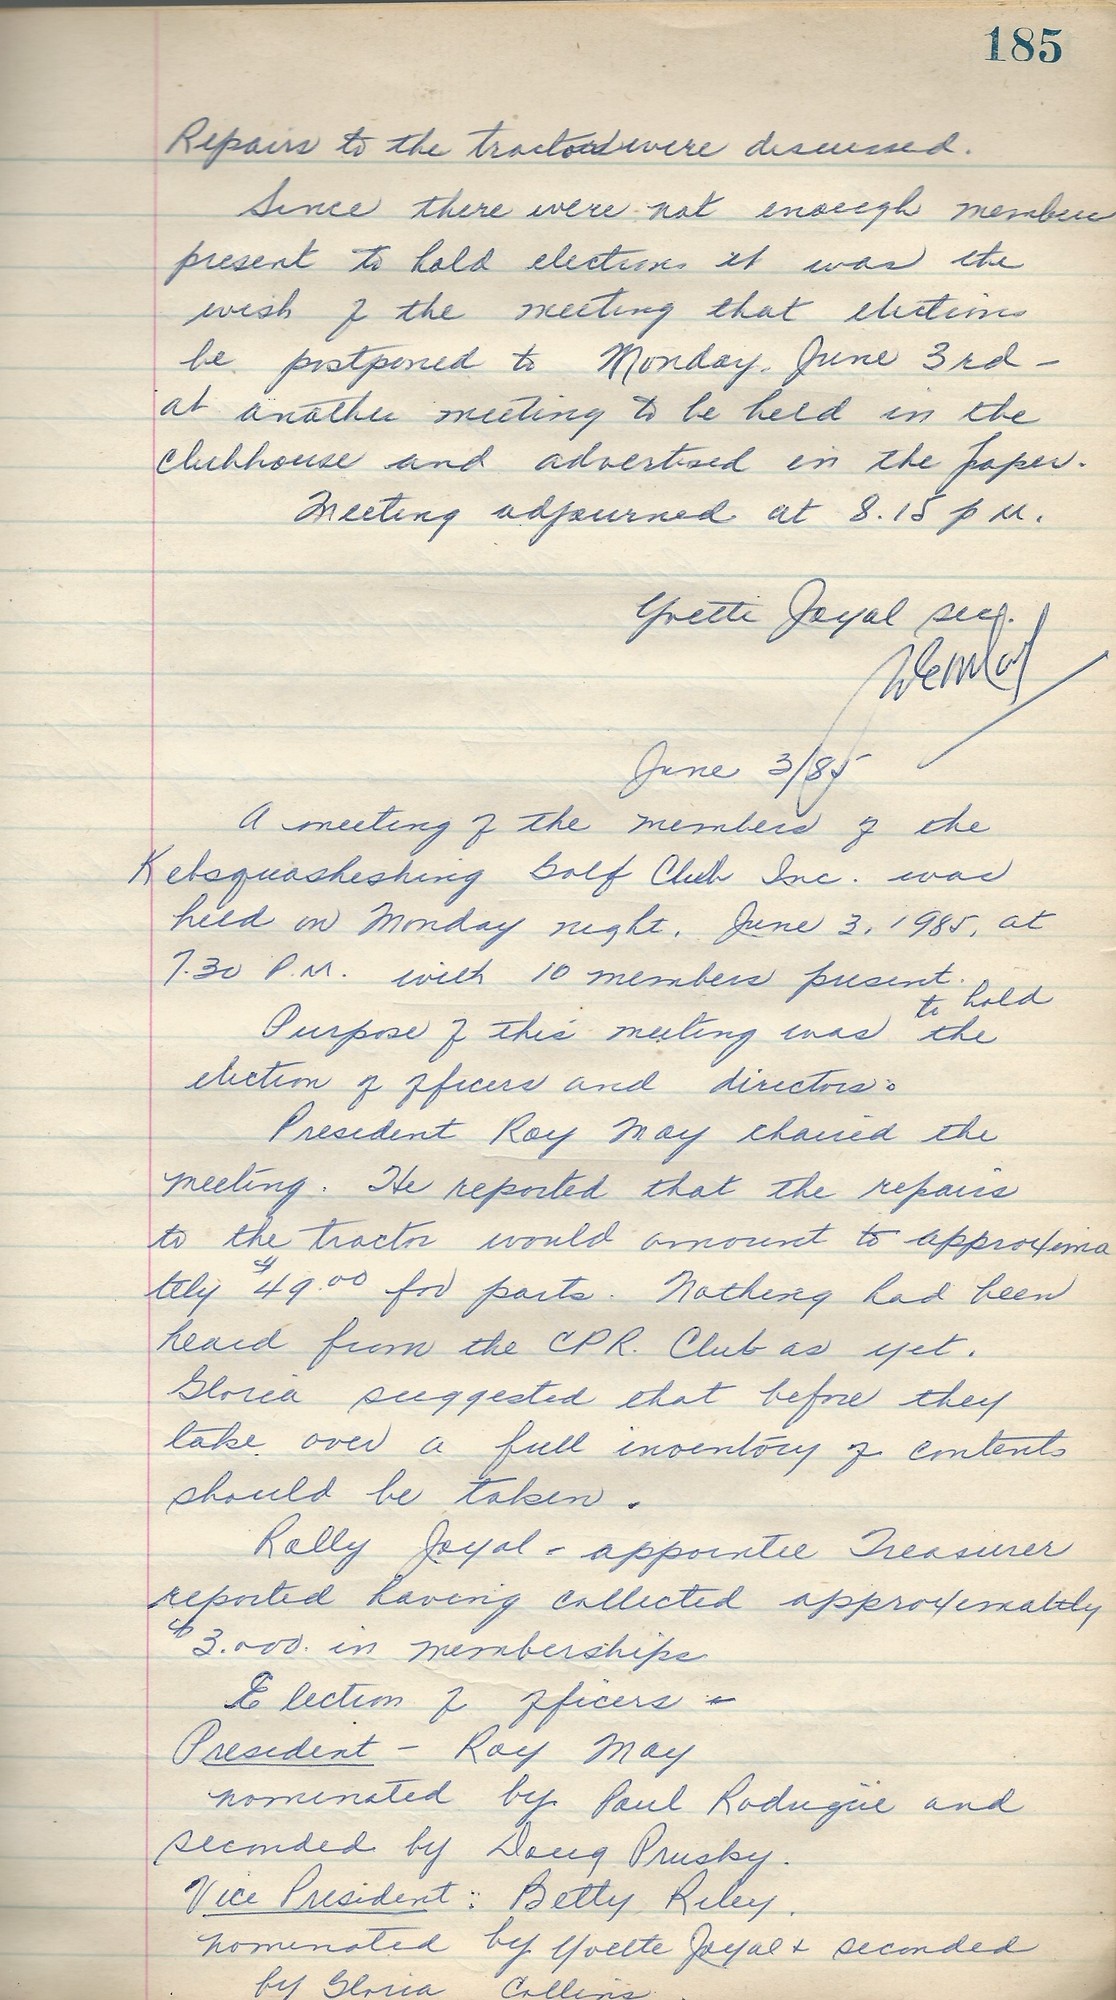 185
Repairs to the tractor were discussed.
Since there were not enough members
present to hold elections it was the
wish of the meeting that elections
be postponed to Monday, June 3rd -
at another meeting to be held in the
clubhouse and advertised in the paper.
Meeting adjourned at 8.15 p M.
Yvette Joyal sec.
June 3/85
A meeting of the members of the
Kebsquasheshing Golf Club Inc. was
held on Monday night, June 3, 1985, at
7.30 P.M. with 10 members present.
to hold
Purpose of this meeting was the
election of officers and directors.
President Roy May chaired the
meeting. He reported that the repairs
to the tractor would amount to approxima
tely $49.00 for parts. Nothing had been
heard from the CPR. Club as yet.
Gloria suggested that before they
take over a full inventory of contents
should be taken.
Rolly Joyal - appointee Treasurer
reported having collected approximately
$3.000. in memberships
Election of officers -
President - Roy May
nominated by Paul Rodrigue and
seconded by Doug Prusky.
Vice President : Betty Riley.
nominated by Yvette Joyal & seconded
by Gloria Collins.